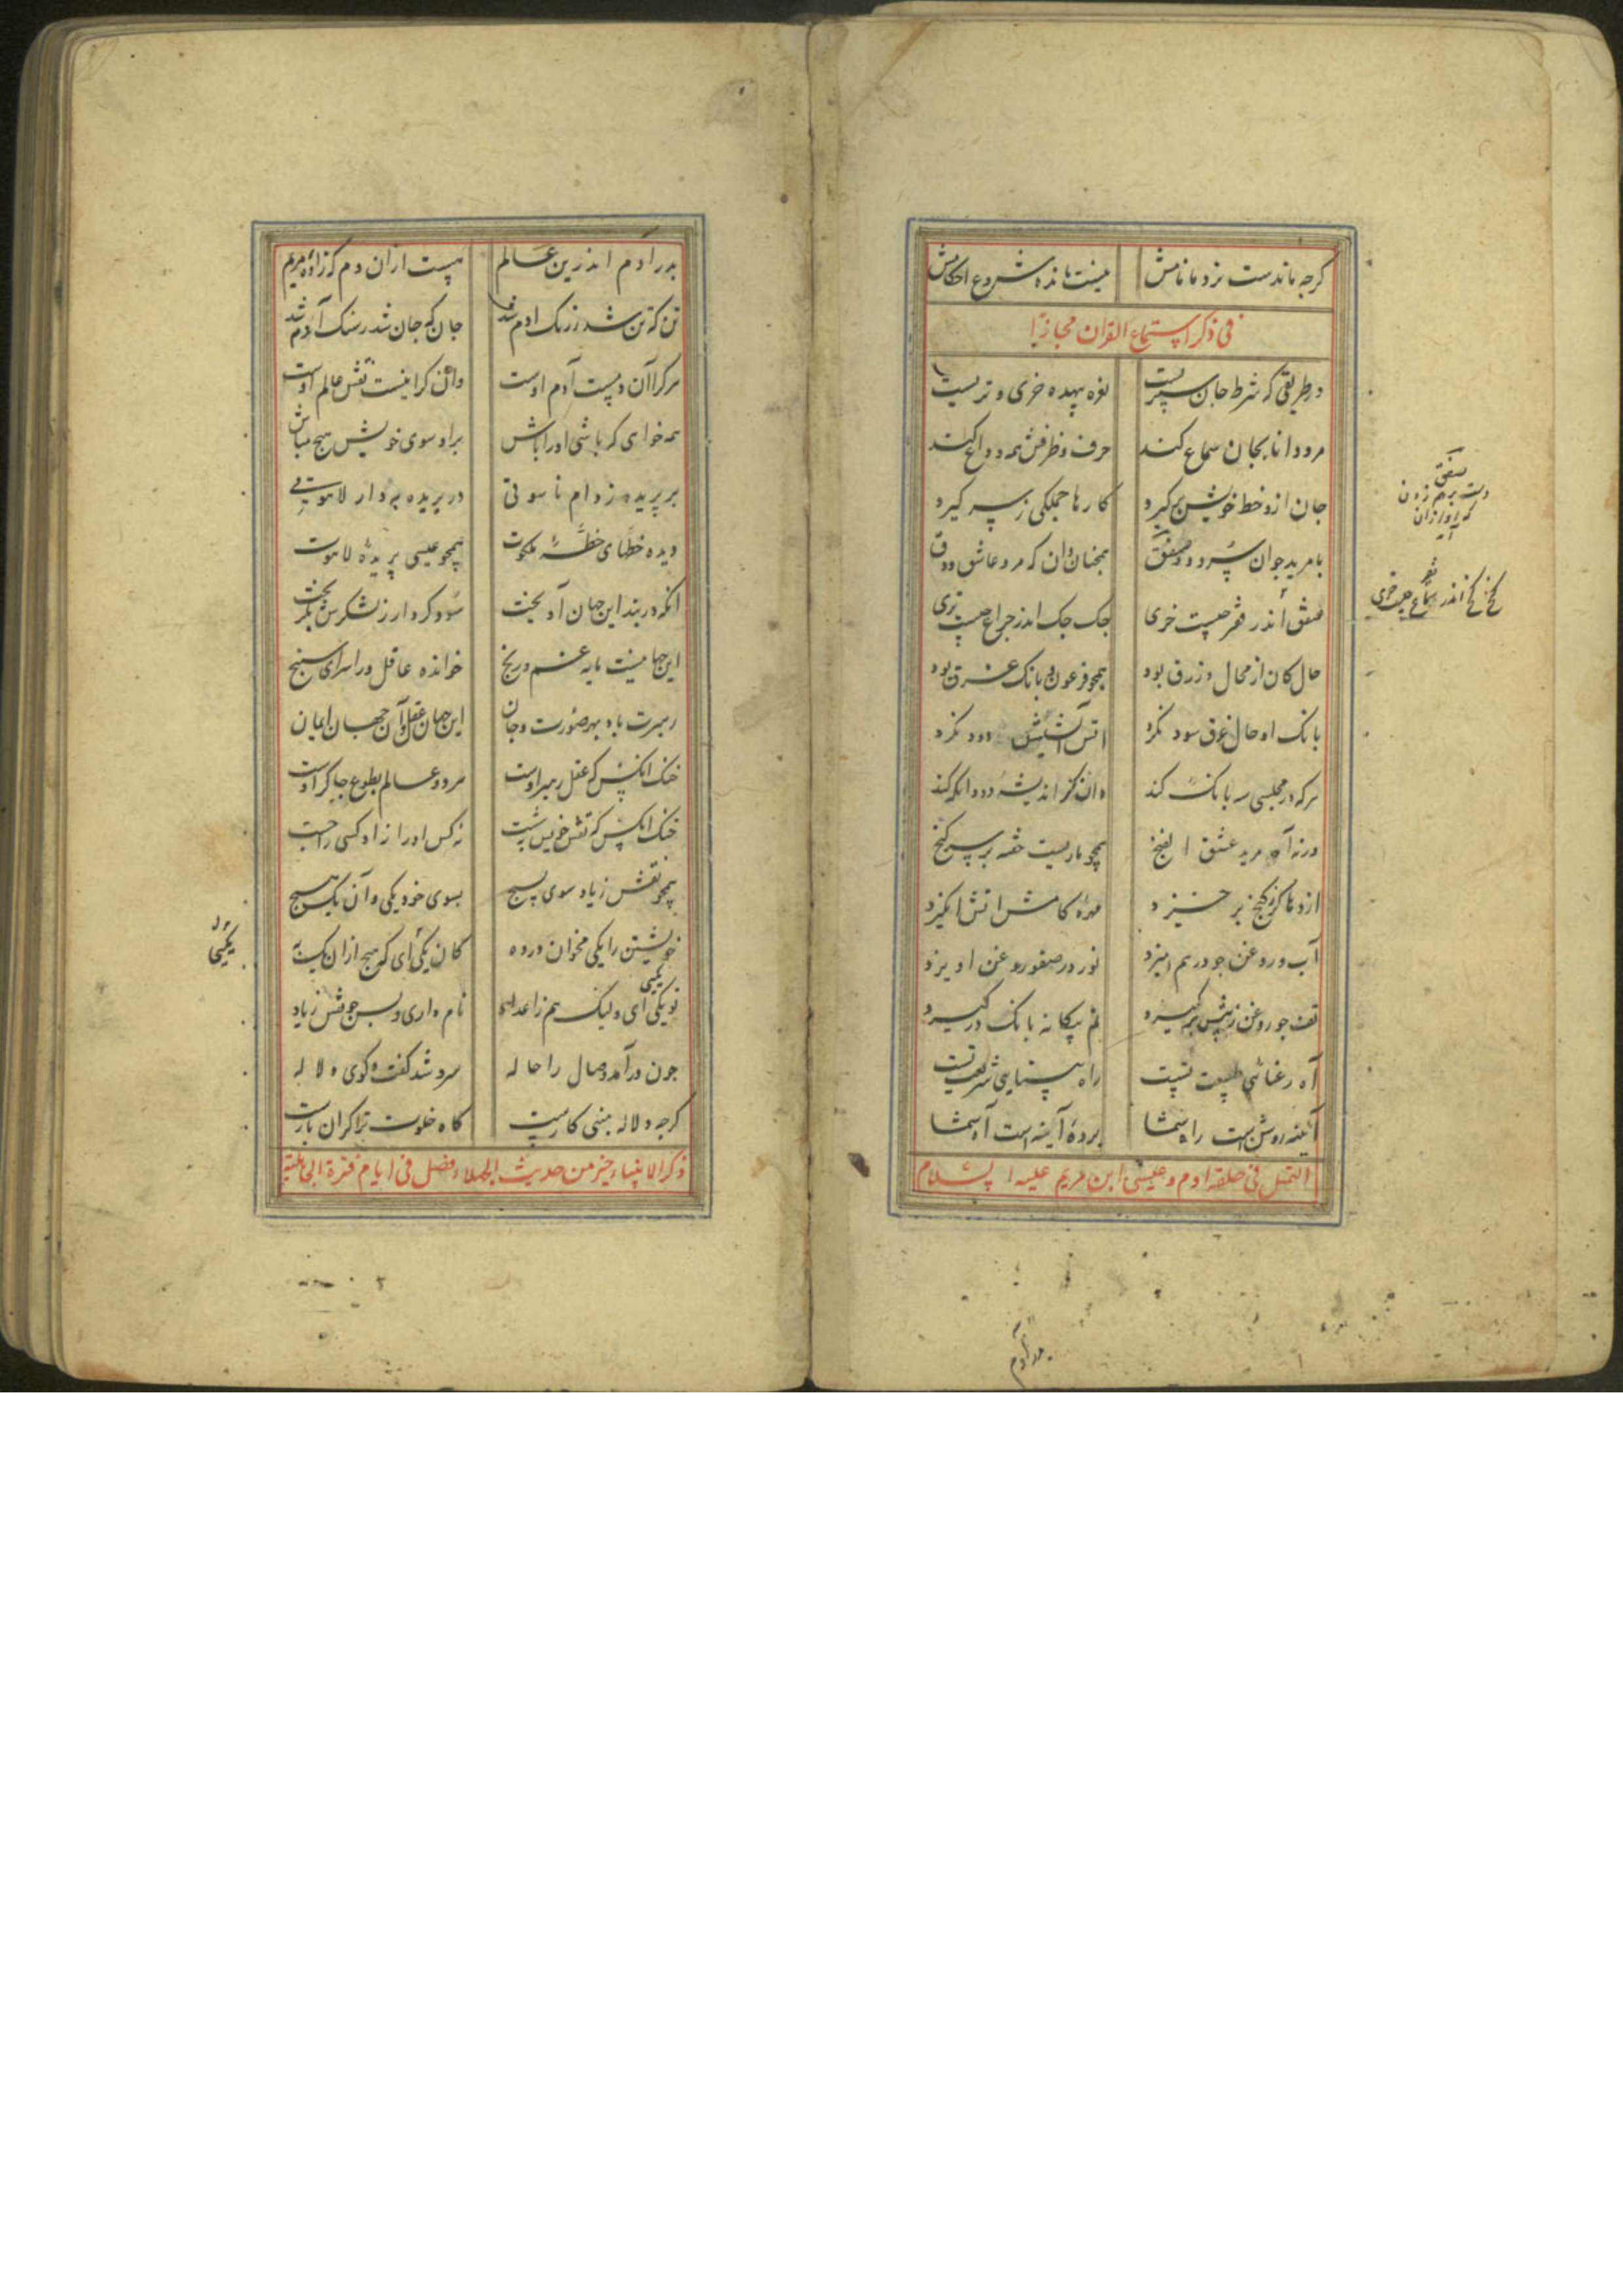 کرجه ماندست نزد ما نامش نیست مانده شروع احکامش
فی ذکر استماع القران مجازیا
در طریقی که شرط جان سپریست نعره بیهده خری و تریست
مرد دانا بجان سماع کند حرف و ظرفش همه وداع کند
جان ازو حظ خویش برکیرد کارها جملکی ز سر کیرد
با مرید جوان سرود و صفق همجنان دان که مرد عاشق و دق
صفق اندر فقر جیست خری جک جک اندر جراغ جیست تری
حال کان از محال و زرق بود همجو فرعون و بانک غرق بود
بانک او حال غرق سود نکرد اتش اشیش دود نکرد
هرکه در مجلسی سه بانک کند دان کز اندیشه دو دانکه کند
ورنه آه مرید عشق الفنج همجو ماریست خفته بر سر کنج
اژدها کز کنج برخیزد مهره کامش اتش انکیزد
آب و روغن جو درهم امیزد نور در صفو روغن اویزد
تف جو روغن ز پیش برکیرد نم بیکانه بانک درکیرد
آه رعنائی طبیعت تست راه بینایی شریعت تست
آینه روشن است راه شما پرده آینه است آه شما
التمثل فی خلقة ادم و عیسی ابن مریم علیه السلام
صفق
دست برهم زدن
که آواز ازان
آید
کخ کخ اندر سماع جیست خری
پدر آدم
پدر آدم اندرین عالم هست ازان دم که زاده مریم
تن که تن شد ز رنک ادم شد جان که جان شد ز سنک آدم شد
هرکرا آن دمیست آدم اوست وانکرا نیست نقش عالم اوست
همه خواهی که باشی اورا باش بر او سوی خویش هیج مباش
بر پریده ز دام ناسوتی در پریده به دار لاهوتی
دیده خطهای خطه ملکوت همجو عیسی پریده لاهوت
انکه در بند این جهان آویخت سود کرد ار ز لشکرش بکریخت
این جهان نیست مایه غم و رنج خوانده عاقل ورا سرای سپنج
رهبرت باد بهر صورت و جان این جهان عقل و آن جهان ایمان
خنک انکس که عقل رهبر اوست هر دو عالم بطوع جاکر اوست
خنک انکس که نقش خویش بشست نه کس اورا نه او کسی را جست
همجو نقش زیاد سوی بسیج بسوی خود یکی و آن یک هیج
خویشتن را یکی مخوان در ده کان یکی ای که هیج ازان یک به
تو یکی ای ولیک هم ز اعداد نام داری و بس جو نقش زیاد
جون درآمد وصال را حاله سرد شد کفت و کوی دلاله
کرجه دلاله مهنی کاریست کاه خلوت ترا کران باریست
ذکر الانبیاء خیر من حدیث الجهلاء فصل فی ایام فترة الجاهلیة